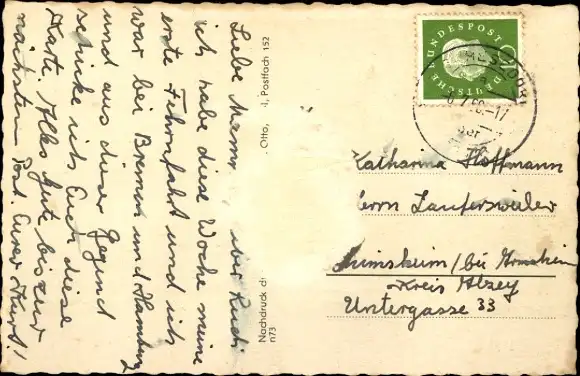 Liebe Mama iber Rudi
ich habe diese Woche meine
erste Fernfahrt und ich
war bei Bremen und Hamburg
und aus dieser Gegend
schicke ich Euch diese
Karte Alles gute bis zur
nächsten Post. Euer Kurt!
Nachdruck
n73
Otto, Postfach 152
DEUTSCHE BUNDESPOST
Katharina Hoffmann
Herrn Laufersweiler
Mumsheim / bei Armsheim
Kreis Alzey
Untergasse 33